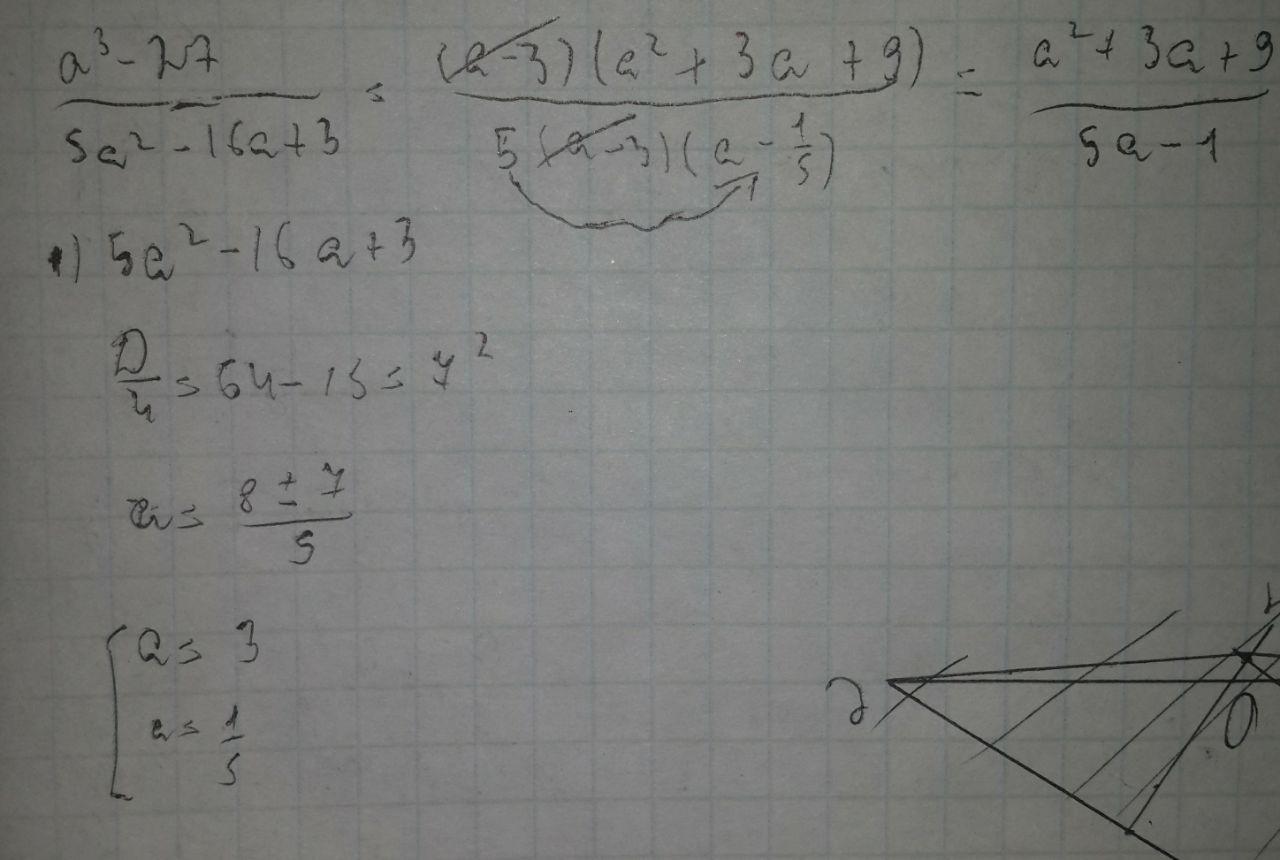 a³-27 / 5a²-16a+3 = (a-3)(a²+3a+9) / 5(a-3)(a-1/5) = a²+3a+9 / 5a-1
1) 5a²-16a+3
D/4 = 64-15=7²
a = 8±7 / 5
[ a = 3
a = 1/5
O